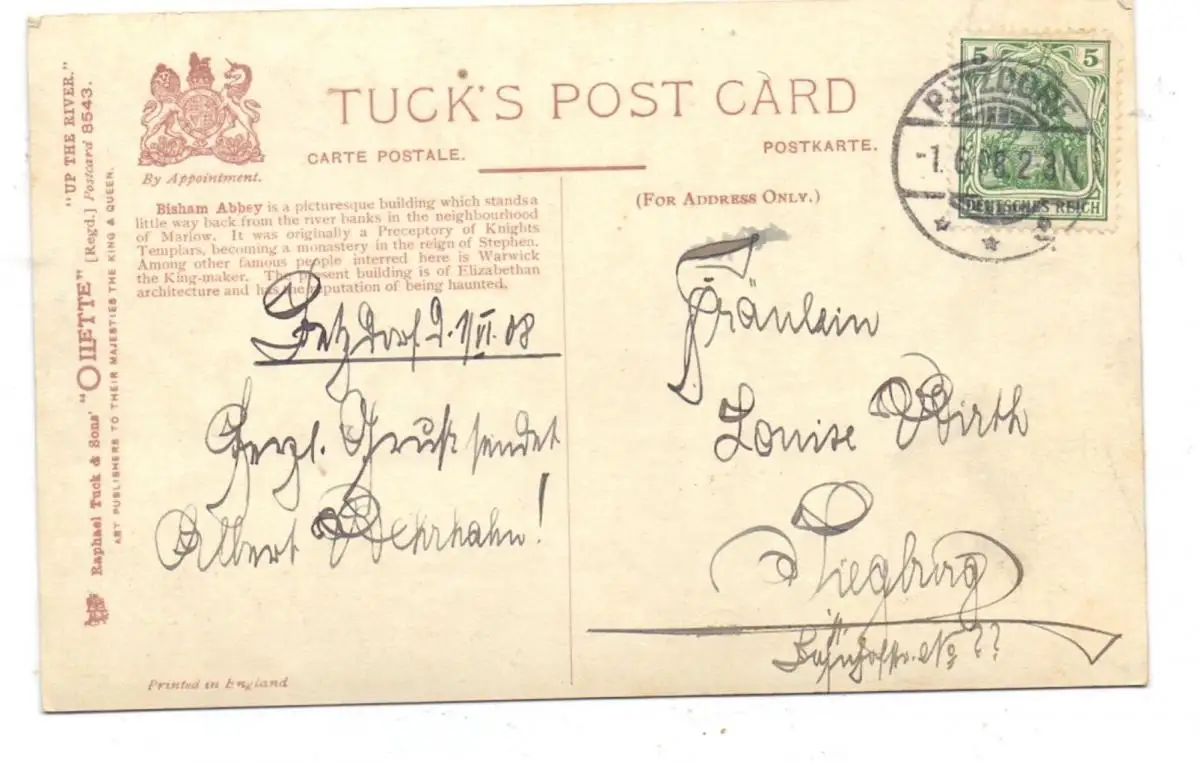 "UP THE RIVER."
Raphael Tuck & Sons' "OILETTE" [Regd.] Postcard 8543.
ART PUBLISHERS TO THEIR MAJESTIES THE KING & QUEEN.
By Appointment.
TUCK'S POST CARD
CARTE POSTALE.
POSTKARTE.
Bisham Abbey is a picturesque building which stands a
little way back from the river banks in the neighbourhood
of Marlow. It was originally a Preceptory of Knights
Templars, becoming a monastery in the reign of Stephen.
Among other famous people interred here is Warwick
the King-maker. The present building is of Elizabethan
architecture and has the reputation of being haunted.
Betzdorf d. 1/VI. 08
Herzl. Gruß sendet
Albert Wehrhahn!
Printed in England
(FOR ADDRESS ONLY.)
5 5
DEUTSCHES REICH
-1.6.08.2-3N
Fräulein
Louise Wirth
Siegburg
Bahnhofstr. No ??